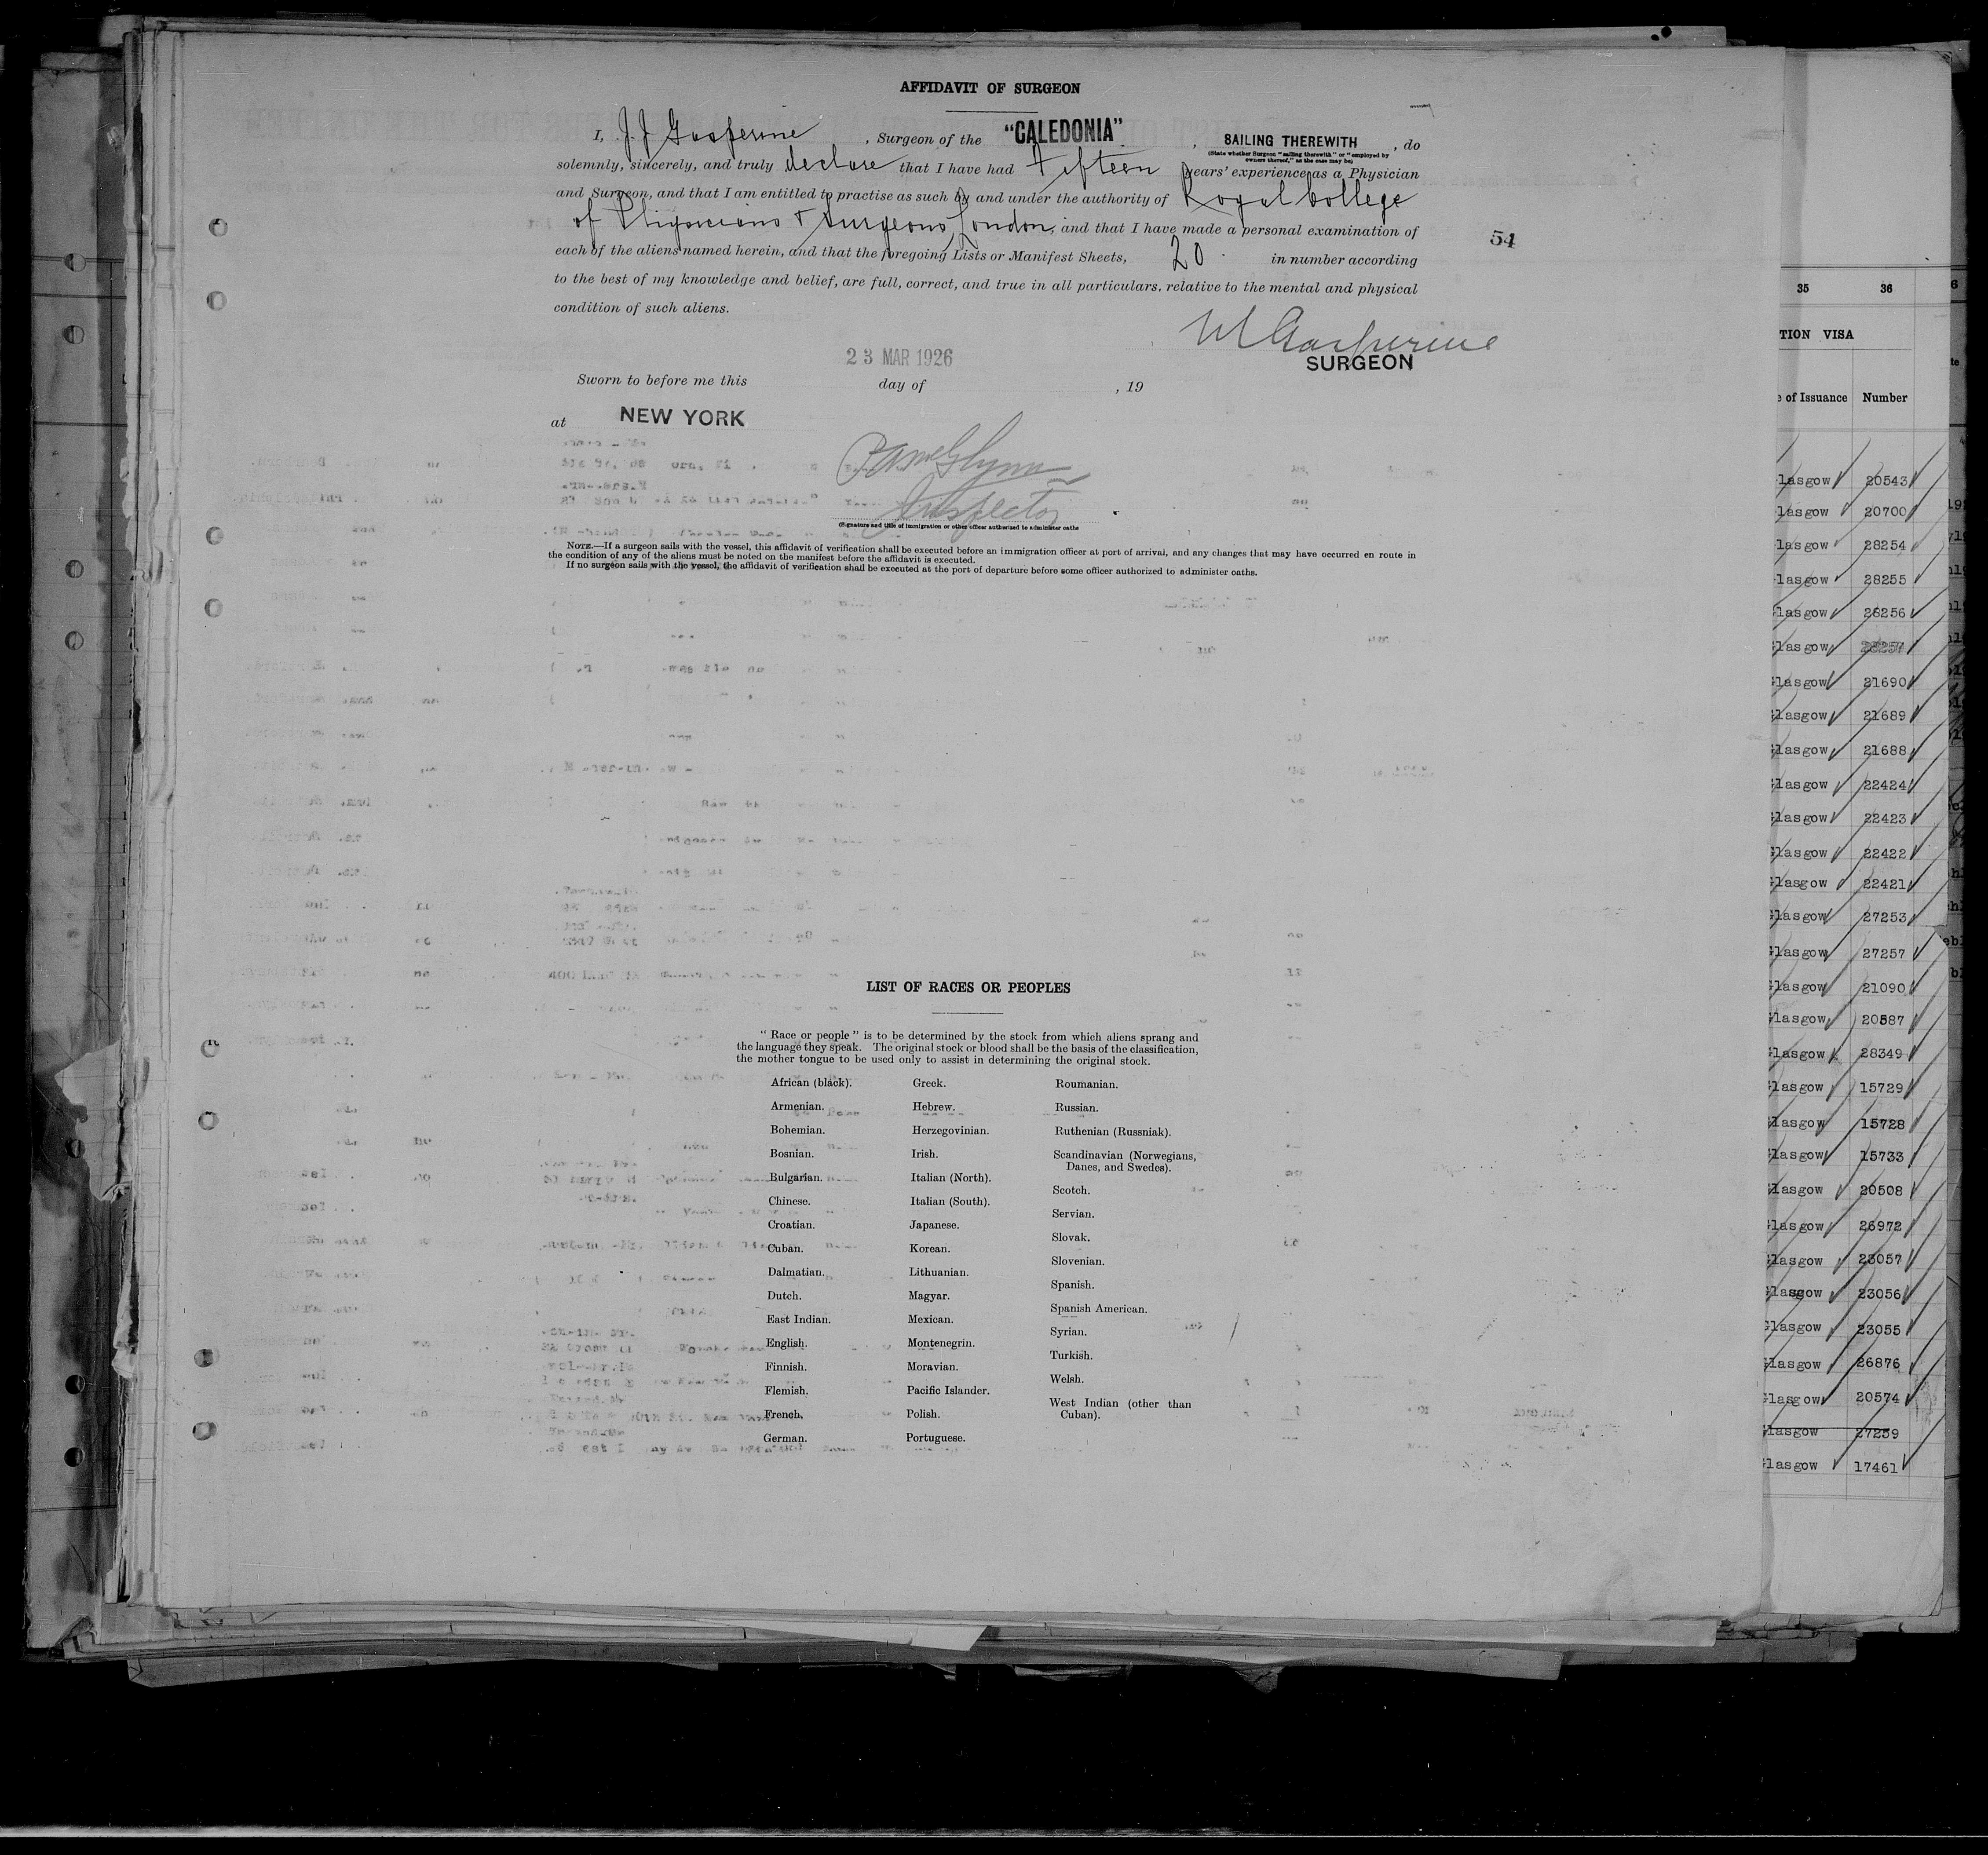 AFFIDAVIT OF SURGEON
I, J J Gasperine, Surgeon of the "CALEDONIA", SAILING THEREWITH, do
(State whether Surgeon "sailing therewith" or "employed by
owners thereof," as the case may be)
solemnly, sincerely, and truly declare that I have had Fifteen years' experience as a Physician
and Surgeon, and that I am entitled to practise as such by and under the authority of Royal College
of Physicians & Surgeons, London, and that I have made a personal examination of
54
each of the aliens named herein, and that the foregoing Lists or Manifest Sheets, 20 in number according
to the best of my knowledge and belief, are full, correct, and true in all particulars, relative to the mental and physical
condition of such aliens.
SURGEON
23 MAR 1926
Sworn to before me this day of , 19
at NEW YORK
Inspector
(Signature and title of immigration or other officer authorized to administer oaths
NOTE.—If a surgeon sails with the vessel, this affidavit of verification shall be executed before an immigration officer at port of arrival, and any changes that may have occurred en route in
the condition of any of the aliens must be noted on the manifest before the affidavit is executed.
If no surgeon sails with the vessel, the affidavit of verification shall be executed at the port of departure before some officer authorized to administer oaths.
LIST OF RACES OR PEOPLES
"Race or people" is to be determined by the stock from which aliens sprang and
the language they speak. The original stock or blood shall be the basis of the classification,
the mother tongue to be used only to assist in determining the original stock.
African (black).
Armenian.
Bohemian.
Bosnian.
Bulgarian.
Chinese.
Croatian.
Cuban.
Dalmatian.
Dutch.
East Indian.
English.
Finnish.
Flemish.
French.
German.
Greek.
Hebrew.
Herzegovinian.
Irish.
Italian (North).
Italian (South).
Japanese.
Korean.
Lithuanian.
Magyar.
Mexican.
Montenegrin.
Moravian.
Pacific Islander.
Polish.
Portuguese.
Roumanian.
Russian.
Ruthenian (Russniak).
Scandinavian (Norwegians,
Danes, and Swedes).
Scotch.
Servian.
Slovak.
Slovenian.
Spanish.
Spanish American.
Syrian.
Turkish.
Welsh.
West Indian (other than
Cuban).
35 36
TION VISA
e of Issuance Number
lasgow 20543
lasgow 20700
lasgow 28254
lasgow 28255
lasgow 28256
lasgow 28257
lasgow 21690
Glasgow 21689
lasgow 21688
Glasgow 22424
Glasgow 22423
Glasgow 22422
Glasgow 22421
Glasgow 27253
Glasgow 27257
Glasgow 21090
Glasgow 20587
Glasgow 28349
Glasgow 15729
Glasgow 15728
Glasgow 15733
Glasgow 20508
Glasgow 26972
Glasgow 23057
Glasgow 23056
Glasgow 23055
Glasgow 26876
Glasgow 20574
Glasgow 27239
Glasgow 17461